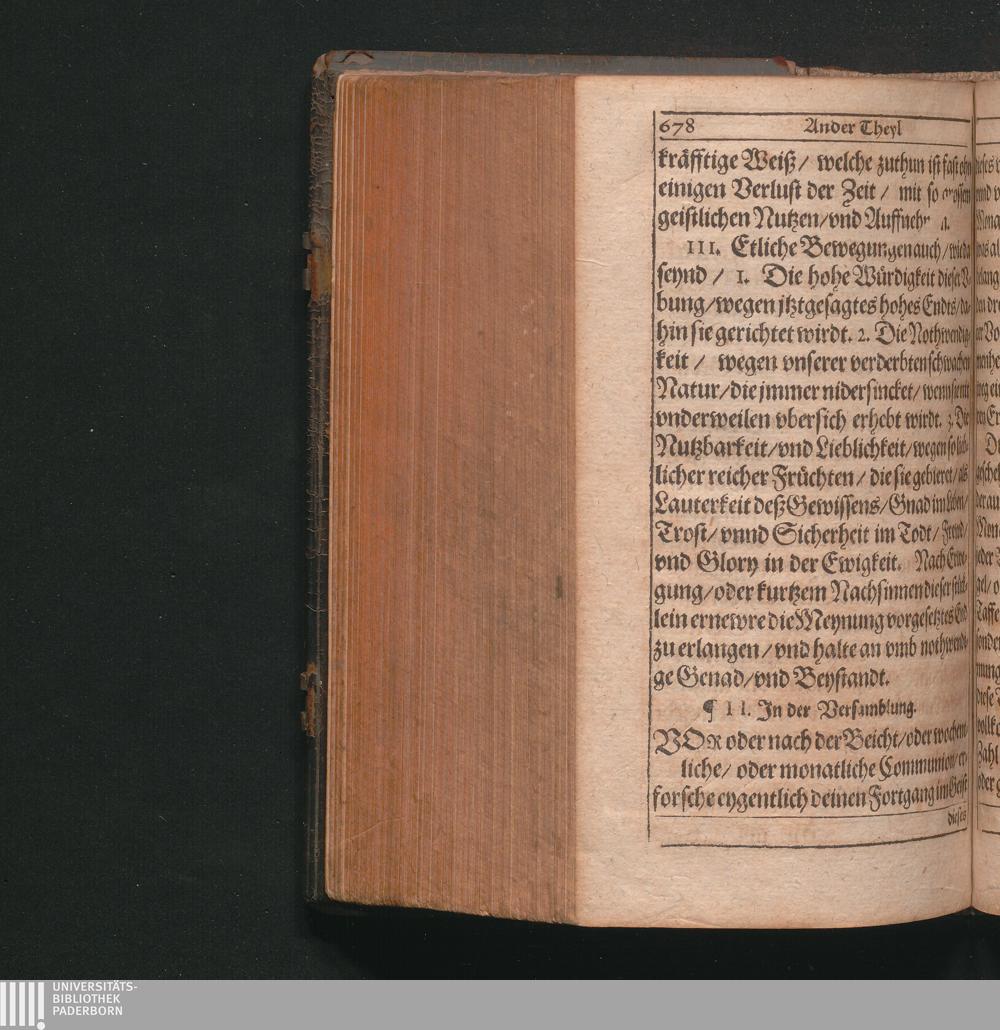 678 Ander Theyl
kräfftige Weiß / welche zuthun ist fast ohn
einigen Verlust der Zeit / mit so grossen
geistlichen Nutzen/vnd
III. Etliche Bewegungen auch / wie da
seynd / 1. Die hohe Würdigkeit dieser V-
bung/wegen jtztgesagtes hohes Endts/da-
hin sie gerichtet wirdt. 2. Die Nothwendig-
keit / wegen vnserer verderbten schwachen
Natur/die jmmer nidersincket/wenn sie nit
vnderweilen vbersich erhebt wirdt. 3. Die
Nutzbarkeit/vnd Lieblichkeit/wegen so
licher reicher Früchten / die sie gebieret/als
Lauterkeit deß Gewissens/Gnad im Leben/
Trost/vnnd Sicherheit im Todt/Frewd/
vnd Glory in der Ewigkeit. Nach Erwe-
gung/oder kurtzem Nachsinnen dieser
lein ernewre die Meynung vorgesetztes End
zu erlangen/vnd halte an vmb nothwendi-
ge Genad/vnd Beystandt.
¶ II. In der Versamblung.
VOR oder nach der Beicht/oder wochent-
liche/ oder monatliche Communion/er-
forsche eygentlich deinen Fortgang im Geist
dieses
UNIVERSITÄTS-
BIBLIOTHEK
PADERBORN